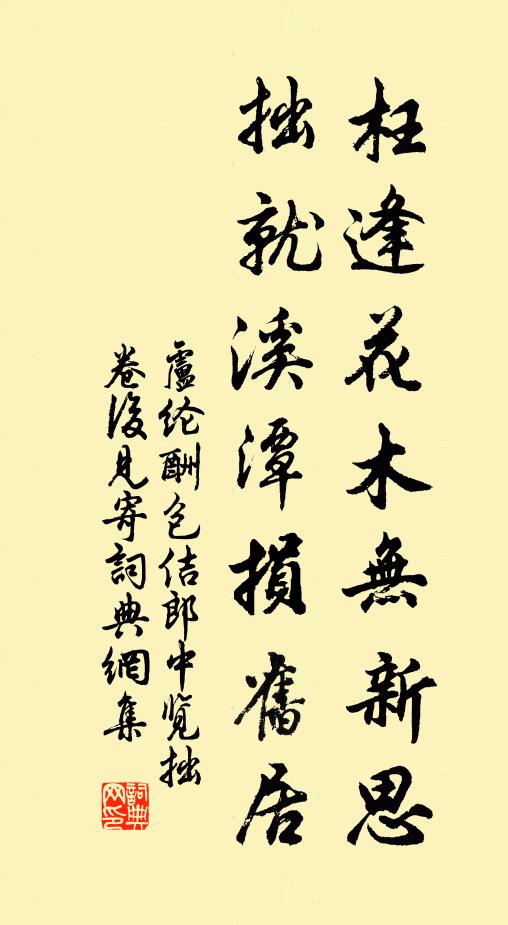 枉逢花木無新思
拙就溪潭損舊居
盧纶酬包佶郎中览拙
卷後見寄詞典網集
詞典网印